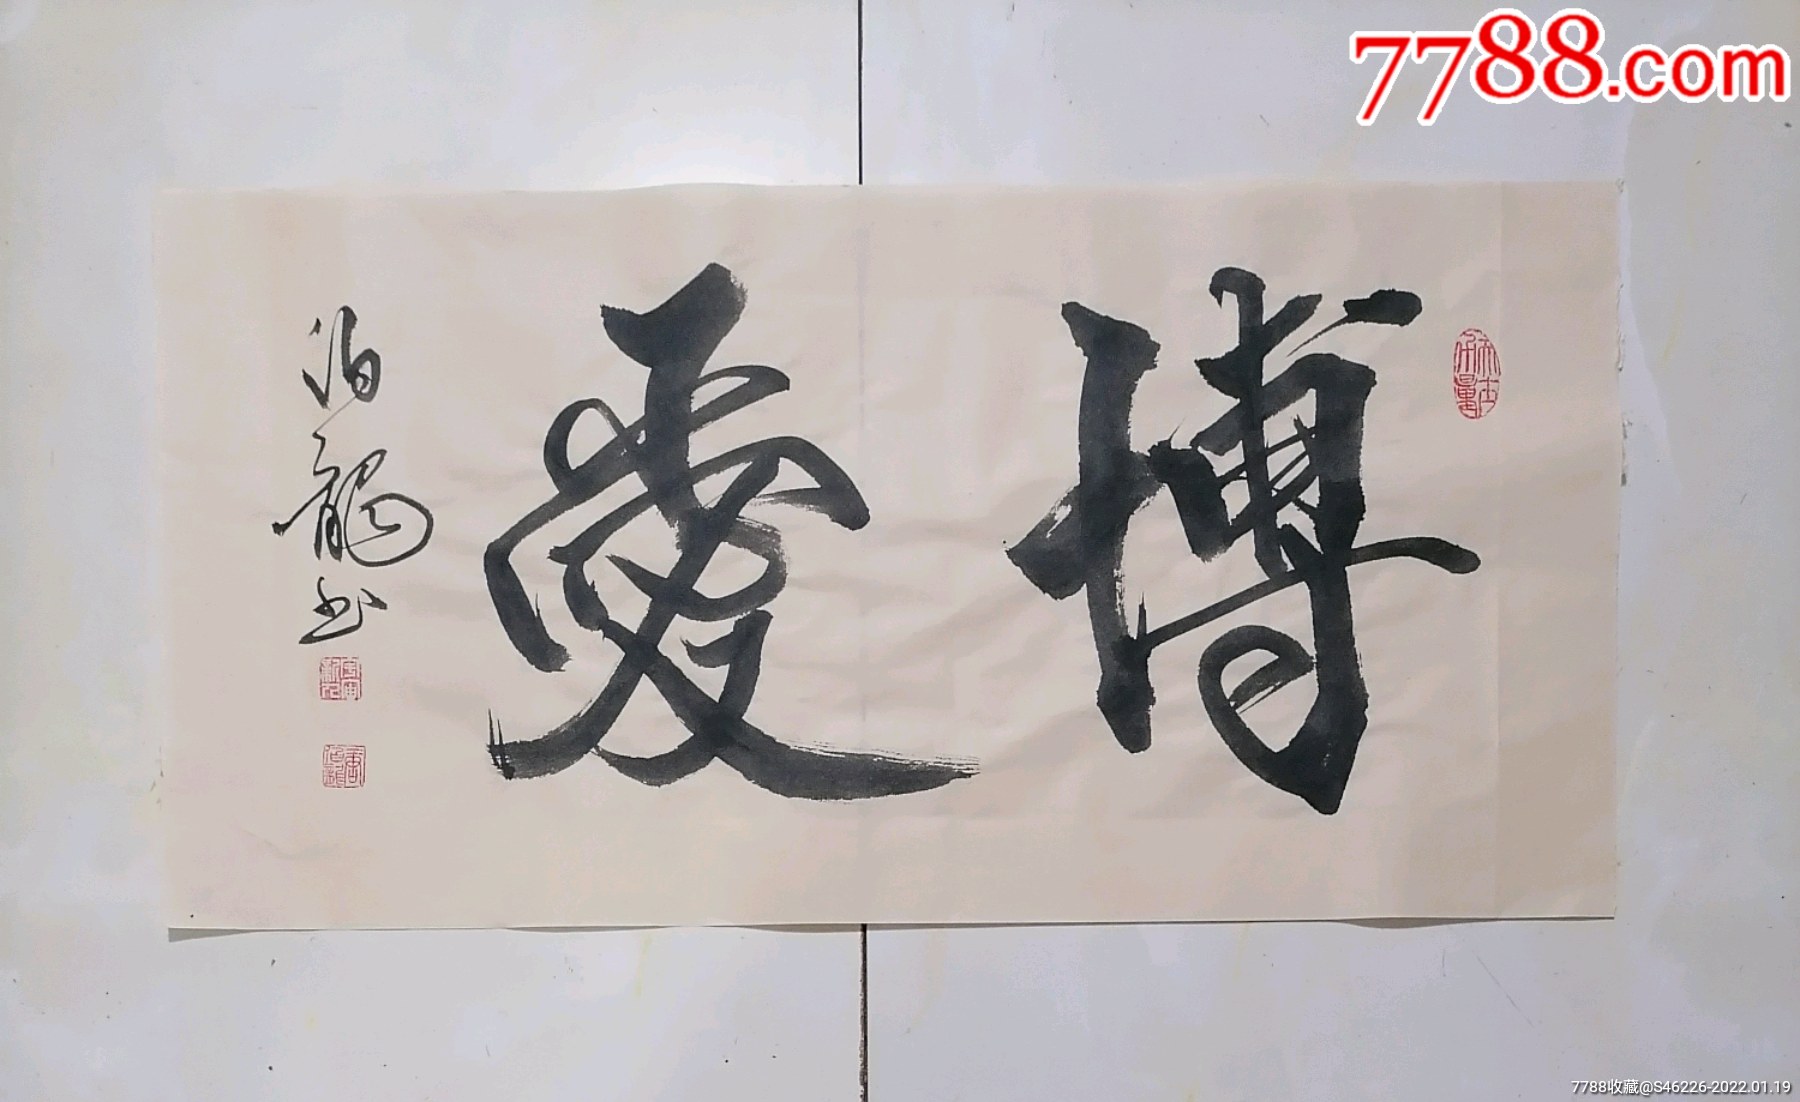 7788.com
博愛
伯龍书
7788收藏@S46226-2022.01.19